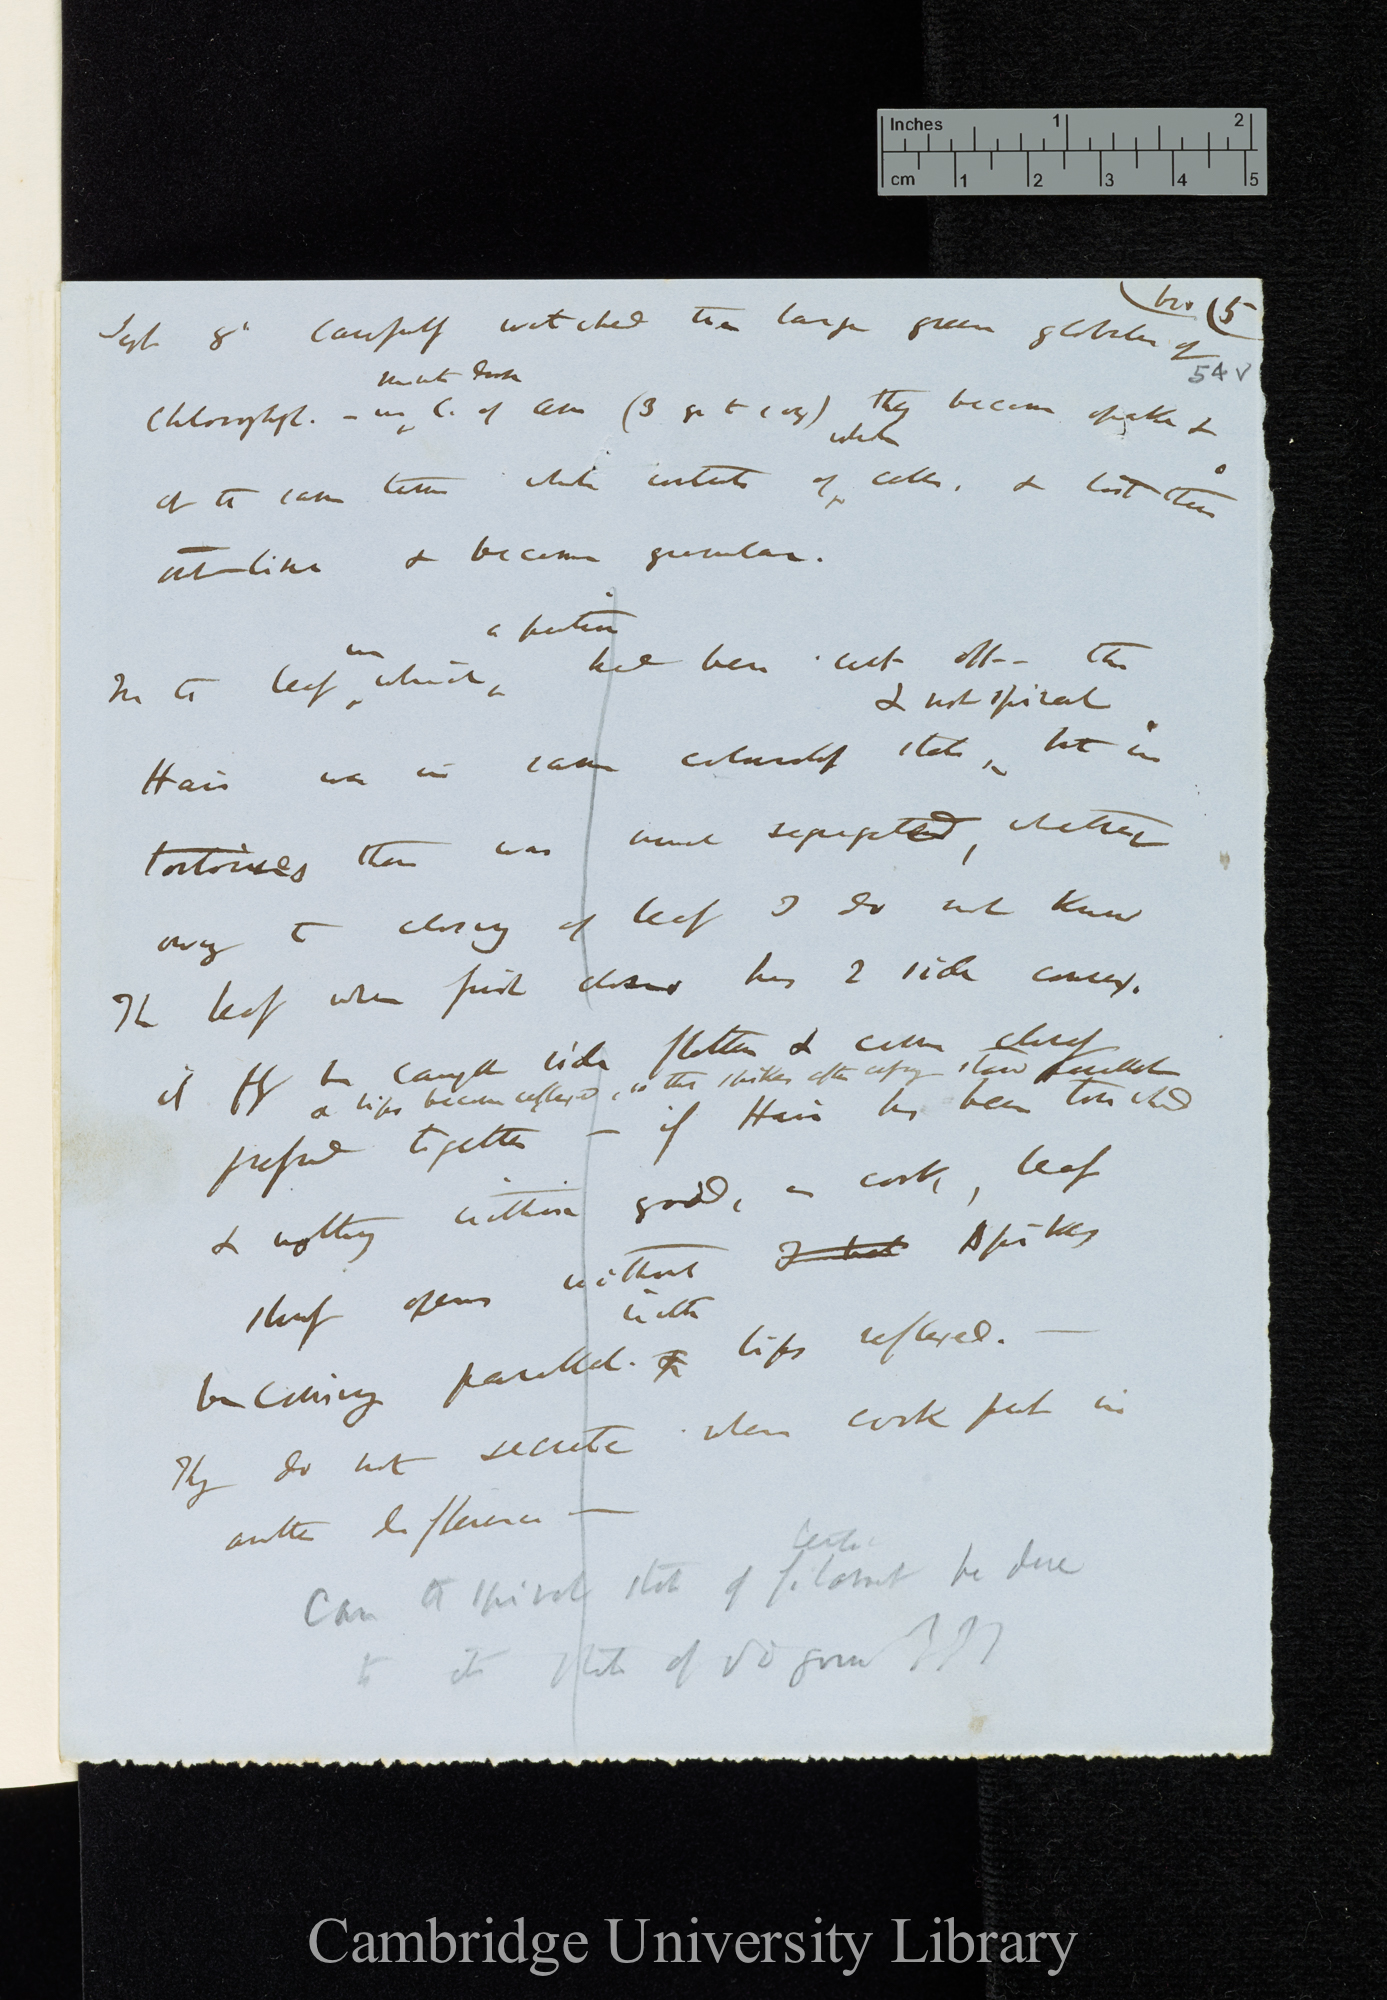 Inches 1 2
cm 1 2 3 4 5
(5
54 v
Sept 8th carefully watched the large green globules of
Chlorophyl. — in C. of Am (3 gr to 1 oz) they became opake &
of the same tint while contents of
when
cells. & lost their
outline & became granular.
a portion
In the leaf in which had been cut off — the
& not spiral
Hair was in same colourless state, but in
tortoises there was much segregated, whether
owing to closing of leaf I do not know
The leaf when first closes has 2 side convex.
if fly be caught side flatten & come closely
& lips become reflexed, so that spikes after crossing stand parallel
pressed together — if Hair has been touched
& nothing within good, as cork, leaf
slowly opens without Spikes
with
becoming parallel. or lips reflexed. —
They do not secrete when cork put in
another difference —
Can the spiral state of filament be due
to the state of
Cambridge University Library